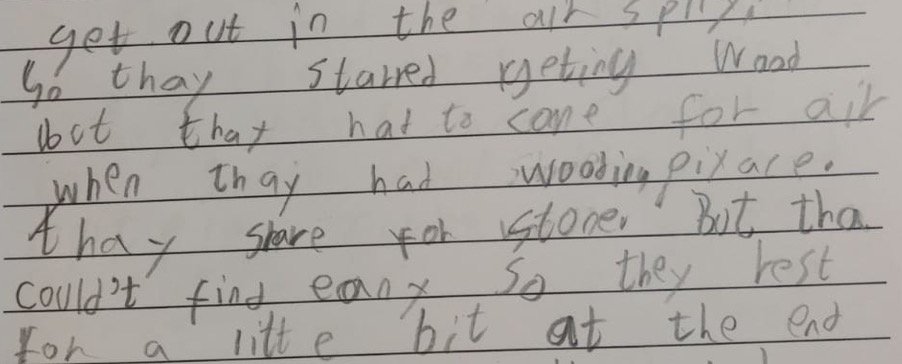 get out in the air
So thay starred geting Wood
but thay had to come for air
when thay had woodin pixace.
thay stare for stone. But tha
could't find eany so they rest
for a litte bit at the end